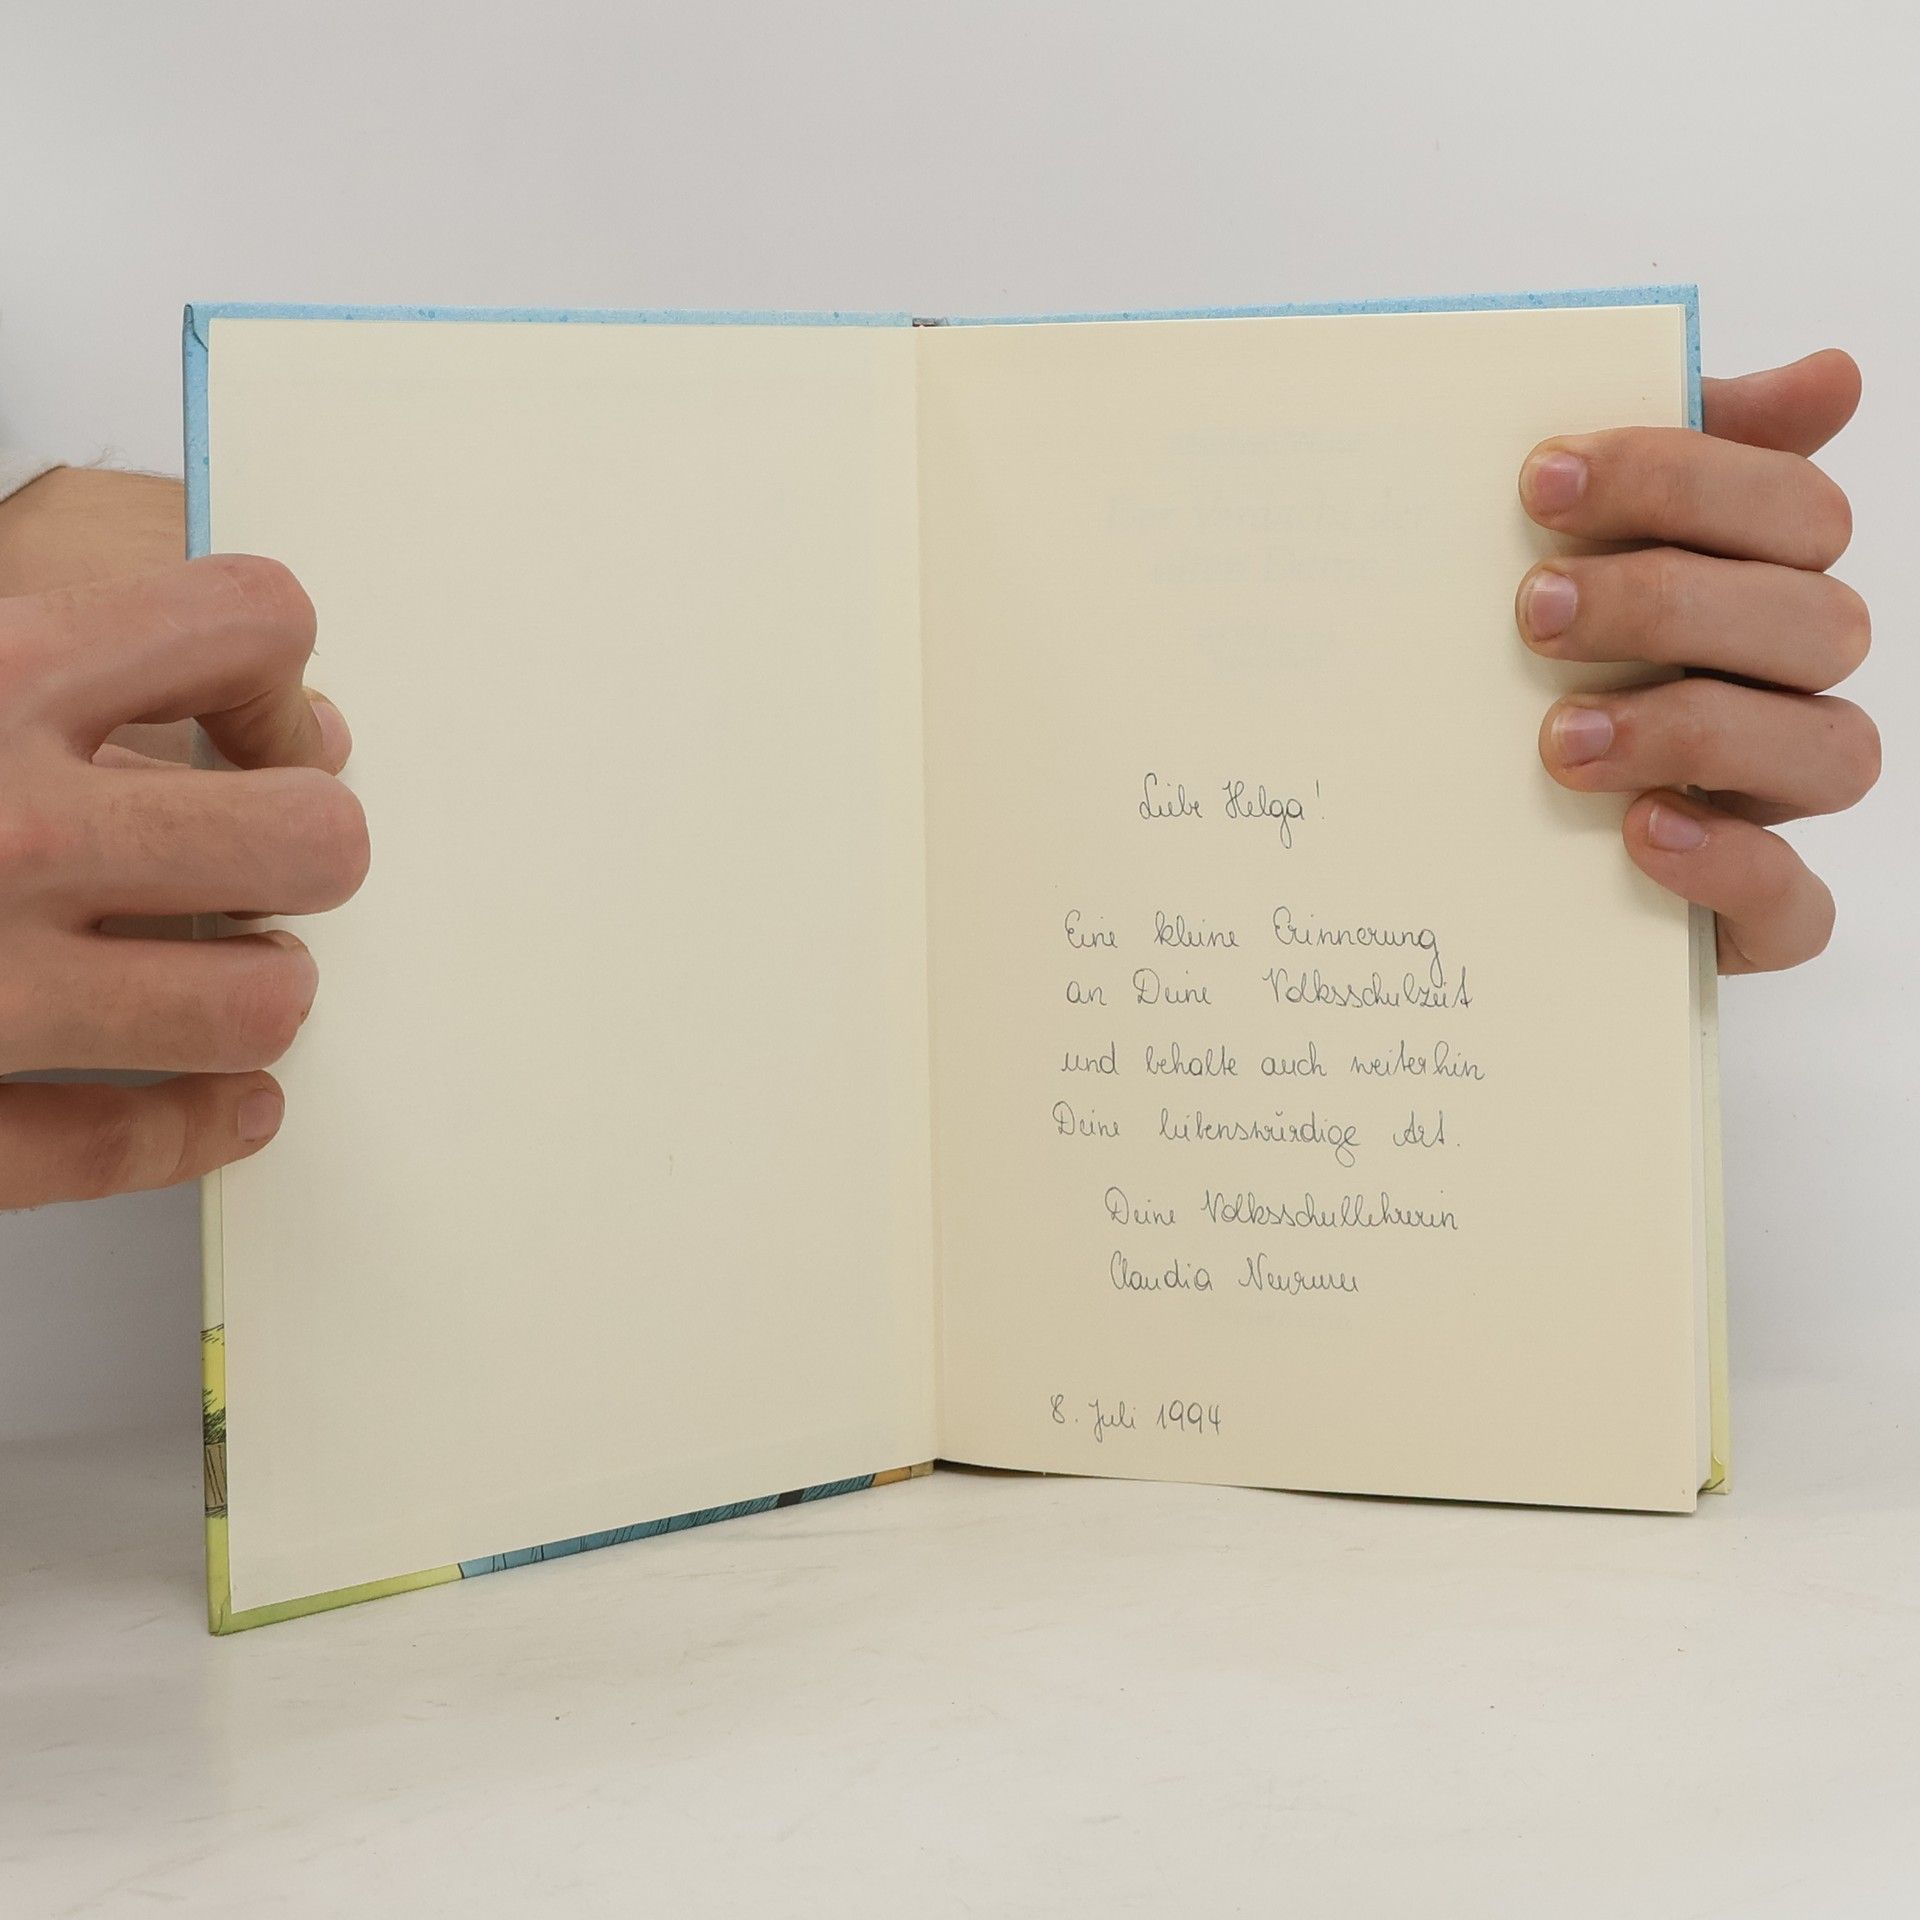 Liebe Helga!
Eine kleine Erinnerung
an Deine Volksschulzeit
und behalte auch weiterhin
Deine liebenswürdige Art.
Deine Volksschullehrerin
Claudia
8. Juli 1994